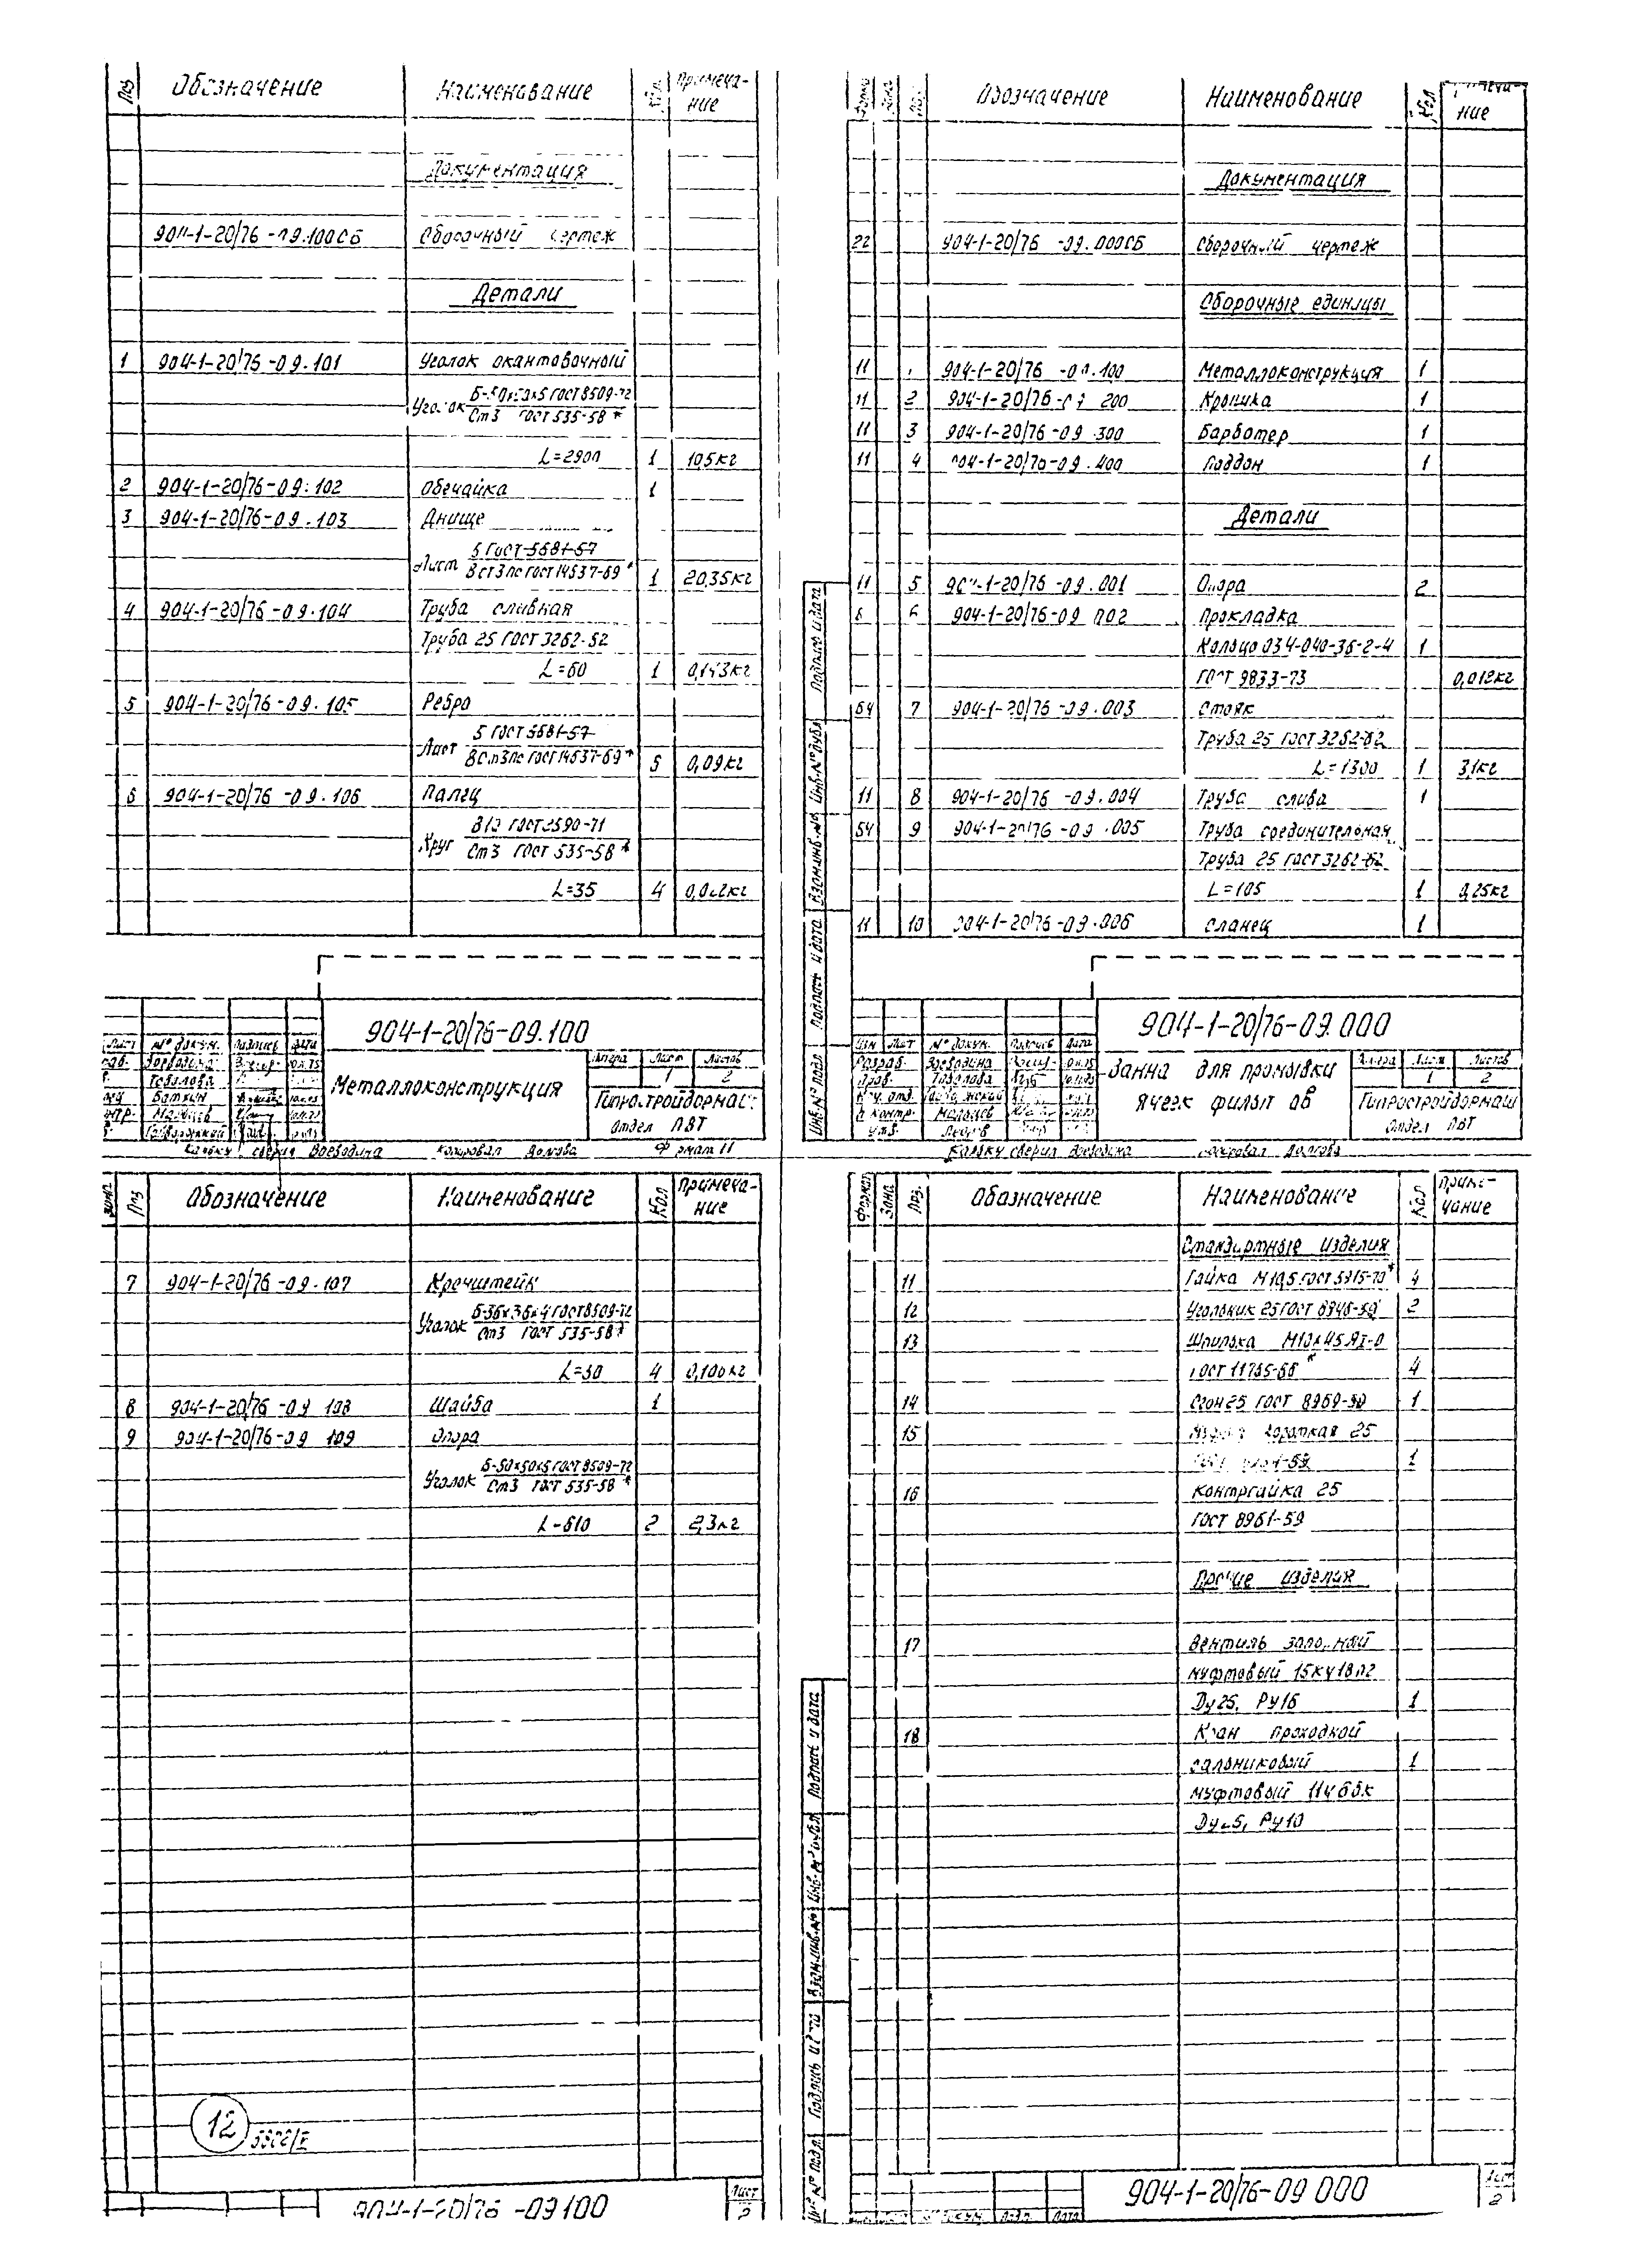 Поз Обозначение Наименование Кол Примеча-
ние
Документация
904-1-20/76-09.100СБ Сборочный чертеж
Детали
1 904-1-20/76-09.101 Уголок окантовочный
Уголок Б-50х50х5 ГОСТ 8509-72
Ст3 ГОСТ 535-58*
L=2900 1 105кг
2 904-1-20/76-09.102 Обечайка 1
3 904-1-20/76-09.103 Днище
Лист 5 ГОСТ 5681-57
Вст3пс ГОСТ 14637-69* 1 20,35кг
4 904-1-20/76-09.104 Труба сливная
Труба 25 ГОСТ 3262-62
L=60 1 0,143кг
5 904-1-20/76-09.105 Ребро
Лист 5 ГОСТ 5681-57
ВСт3пс ГОСТ 14637-69* 5 0,09кг
6 904-1-20/76-09.106 Палец
Круг В10 ГОСТ 2590-71
Ст3 ГОСТ 535-58*
L=35 4 0,022кг
904-1-20/76-09.100
Лист № докум. Подпись Дата
Воеводина
Металлоконструкция
Лист Листов
1 2
Гипростройдормаш
Отдел ПВТ
Кальку сверил Воеводина Копировал Долгова Формат 11
Формат Зона Поз. Обозначение Наименование Кол
ние
Документация
22 904-1-20/76-09.000СБ Сборочный чертеж
Сборочные единицы
11 1 904-1-20/76-09.100 Металлоконструкция 1
11 2 904-1-20/76-09.200 Кроника 1
11 3 904-1-20/76-09.300 Барботер 1
11 4 904-1-20/76-09.400 Поддон 1
Детали
11 5 904-1-20/76-09.001 Опора 2
6 904-1-20/76-09.002 Прокладка
Кольцо 034-040-36-2-4 1
ГОСТ 9833-73 0,012кг
Б4 7 904-1-20/76-09.003 Стояк
Труба 25 ГОСТ 3262-62
L=1300 1 3,1кг
11 8 904-1-20/76-09.004 Труба слива 1
Б4 9 904-1-20/76-09.005 Труба соединительная
Труба 25 ГОСТ 3262-62
L=105 1 0,25кг
11 10 904-1-20/76-09.006 Фланец 1
904-1-20/76-09.000
Изм Лист № докум. Подпись Дата
Разраб. Воеводина
Ванна для промывки
ячеек фильтров
Лист Листов
1 2
Гипростройдормаш
Отдел ПВТ
Кальку сверил Воеводина Копировал Долгова
Зона Поз Обозначение Наименование Кол Примеча-
ние
7 904-1-20/76-09.107 Кронштейн
Уголок Б-36х36х4 ГОСТ 8509-72
Ст3 ГОСТ 535-58*
L=50 4 0,100кг
8 904-1-20/76-09.108 Шайба 1
9 904-1-20/76-09.109 Опора
Уголок Б-50х50х5 ГОСТ 8509-72
Ст3 ГОСТ 535-58*
L=610 2 2,3кг
12
904-1-20/76-09.100
Лист
2
Формат Зона Поз. Обозначение Наименование Кол Приме-
чание
Стандартные изделия
11 Гайка М10,5 ГОСТ 5915-70* 4
12 Угольник 25 ГОСТ 8946-59 2
13 Шпилька
ГОСТ 11765-66* 4
14 Сгон 25 ГОСТ 8969-59 1
15 Муфта короткая 25
1
16 Контргайка 25
ГОСТ 8961-59
Прочие изделия
17 Вентиль запорный
муфтовый 15кч18п2
Ду25, Ру16 1
18 Кран проходной
сальниковый 1
муфтовый 11ч6бк
Ду25, Ру10
904-1-20/76-09.000
Лист
2
Инв.№ подл. Подпись и дата Взам.инв.№ Инв.№ дубл. Подпись и дата